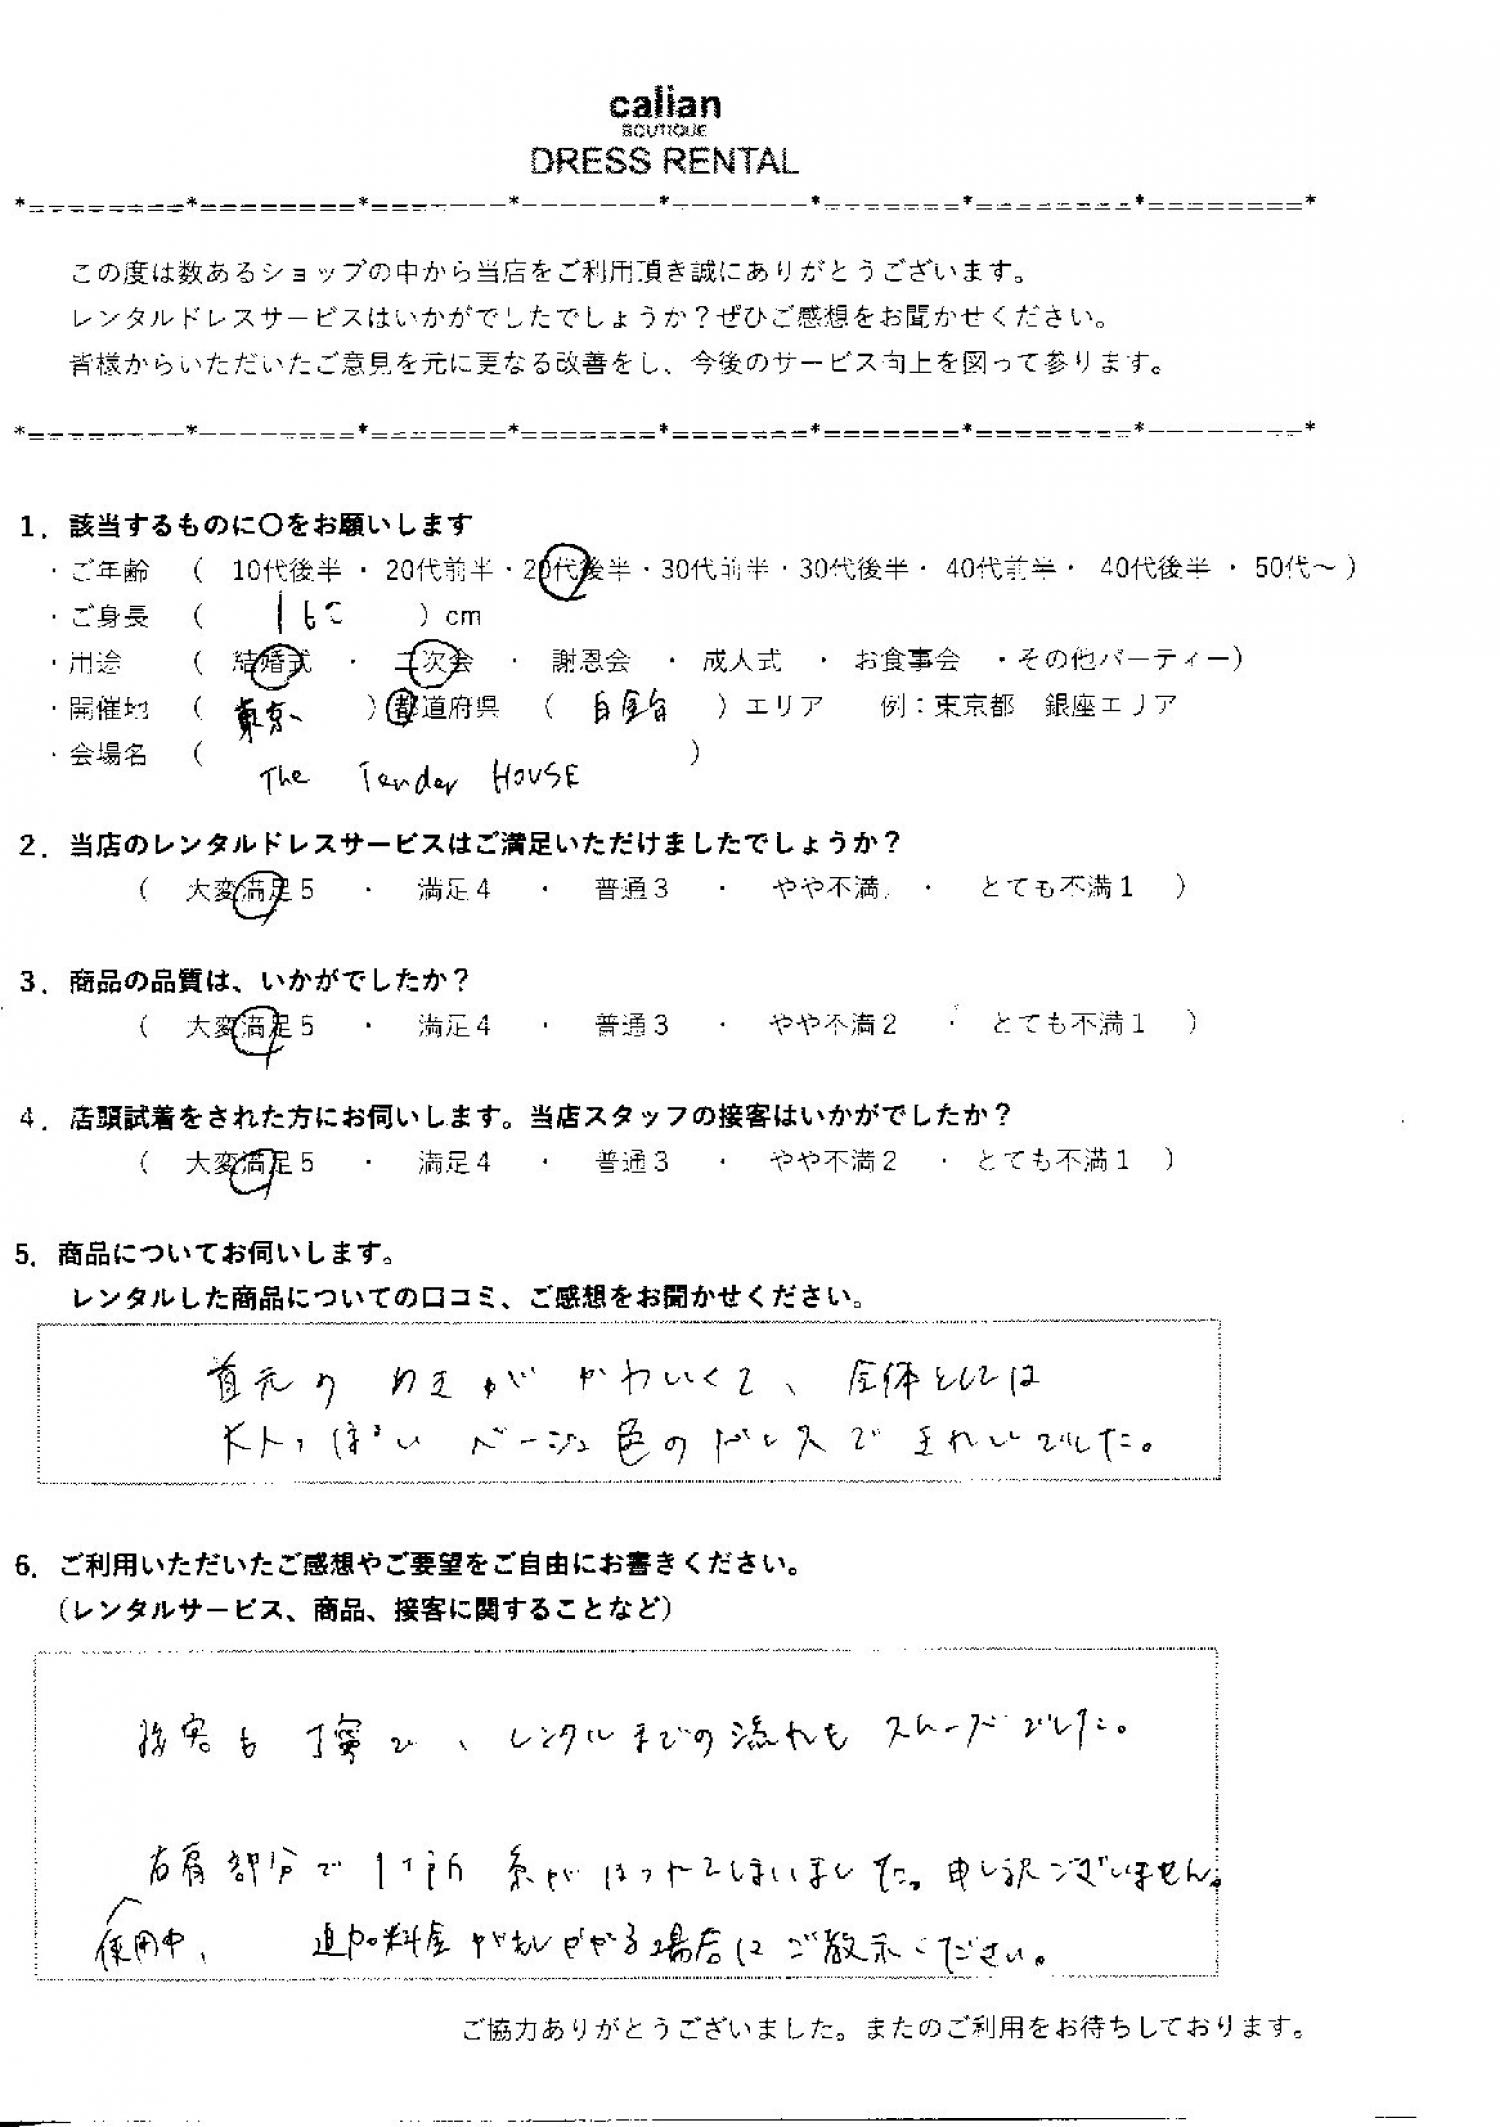 calian
BOUTIQUE
DRESS RENTAL
*=========*=========*========*========*========*========*=========*=========*
この度は数あるショップの中から当店をご利用頂き誠にありがとうございます。
レンタルドレスサービスはいかがでしたでしょうか？ぜひご感想をお聞かせください。
皆様からいただいたご意見を元に更なる改善をし、今後のサービス向上を図って参ります。
*=========*=========*========*========*========*========*=========*=========*
1．該当するものに〇をお願いします
・ご年齢 （ 10代後半 ・ 20代前半・20代後半・30代前半・30代後半・ 40代前半・ 40代後半 ・ 50代～ ）
・ご身長 （ 160 ）cm
・用途 （ 結婚式 ・ 二次会 ・ 謝恩会 ・ 成人式 ・ お食事会 ・その他パーティー）
・開催地 （ 東京 ）都道府県 （ 白金台 ）エリア 例：東京都 銀座エリア
・会場名 （ The Tender HOUSE ）
2．当店のレンタルドレスサービスはご満足いただけましたでしょうか？
（ 大変満足５ ・ 満足４ ・ 普通３ ・ やや不満 ・ とても不満１ ）
3．商品の品質は、いかがでしたか？
（ 大変満足５ ・ 満足４ ・ 普通３ ・ やや不満２ ・ とても不満１ ）
4．店頭試着をされた方にお伺いします。当店スタッフの接客はいかがでしたか？
（ 大変満足５ ・ 満足４ ・ 普通３ ・ やや不満２ ・ とても不満１ ）
5．商品についてお伺いします。
レンタルした商品についての口コミ、ご感想をお聞かせください。
首元の がかわいくて、全体としては
大人っぽい ベージュ色のドレスで きれいでした。
6．ご利用いただいたご感想やご要望をご自由にお書きください。
（レンタルサービス、商品、接客に関することなど）
接客も 丁寧で、レンタルまでの流れも スムーズでした。
右肩部分で 1ヶ所 糸が ほつれてしまいました。申し訳ございません。
使用中、 追加料金がかかる場合はご教示ください。
ご協力ありがとうございました。またのご利用をお待ちしております。